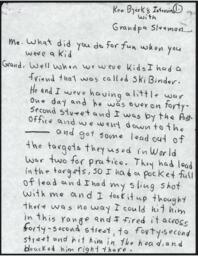 Ken Byerk's Interview
with
Grandpa Sleemon
Me. What did you do for fun when you
were a kid
Grand. Well when we were kids I had a
friend that was called Ski Binder.
He and I were having a little war
one day and he was over on forty-
second street and I was by the Post
Office and we went down to the
and got some lead out of
the targets they used in World
War two for pratice. They had lead
in the targets, so I had a pocket full
of lead and I had my sling shot
with me and I took it up thought
there was no way I could hit him
in this range and I fired it across
forty-second street, to forty-second
street and hit him in the head and
him right there.